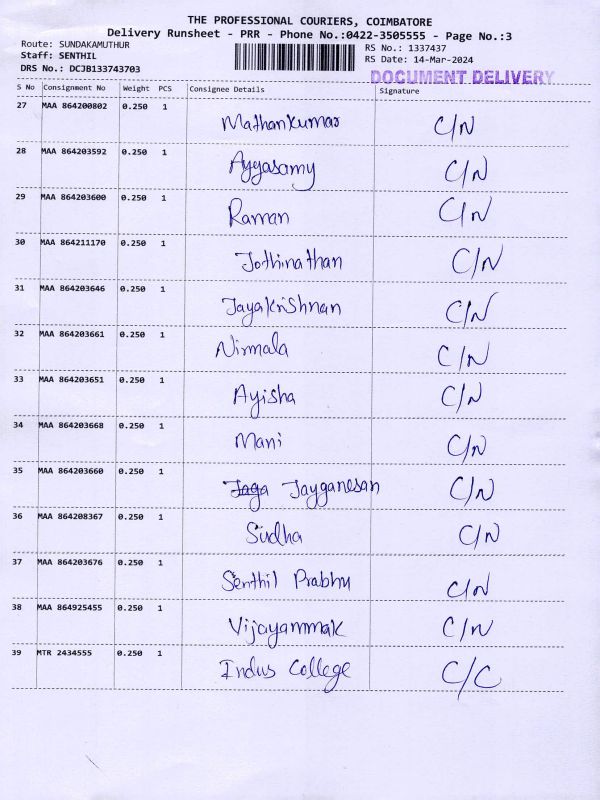 THE PROFESSIONAL COURIERS, COIMBATORE
Delivery Runsheet - PRR - Phone No.:0422-3505555 - Page No.:3
Route: SUNDAKAMUTHUR RS No.: 1337437
Staff: SENTHIL RS Date: 14-Mar-2024
DRS No.: DCJB133743703 DOCUMENT DELIVERY
S No Consignment No Weight PCS Consignee Details Signature
27 MAA 864200802 0.250 1 Mathankumar C/N
28 MAA 864203592 0.250 1 Ayyasamy C/N
29 MAA 864203600 0.250 1 Raman C/N
30 MAA 864211170 0.250 1 Jothinathan C/N
31 MAA 864203646 0.250 1 Jayakrishnan C/N
32 MAA 864203661 0.250 1 Nirmala C/N
33 MAA 864203651 0.250 1 Ayisha C/N
34 MAA 864203668 0.250 1 Mani C/N
35 MAA 864203660 0.250 1 Jaga Jayganesan C/N
36 MAA 864208367 0.250 1 Sudha C/N
37 MAA 864203676 0.250 1 Senthil Prabhu C/N
38 MAA 864925455 0.250 1 Vijayammak C/N
39 MTR 2434555 0.250 1 Indus College C/C